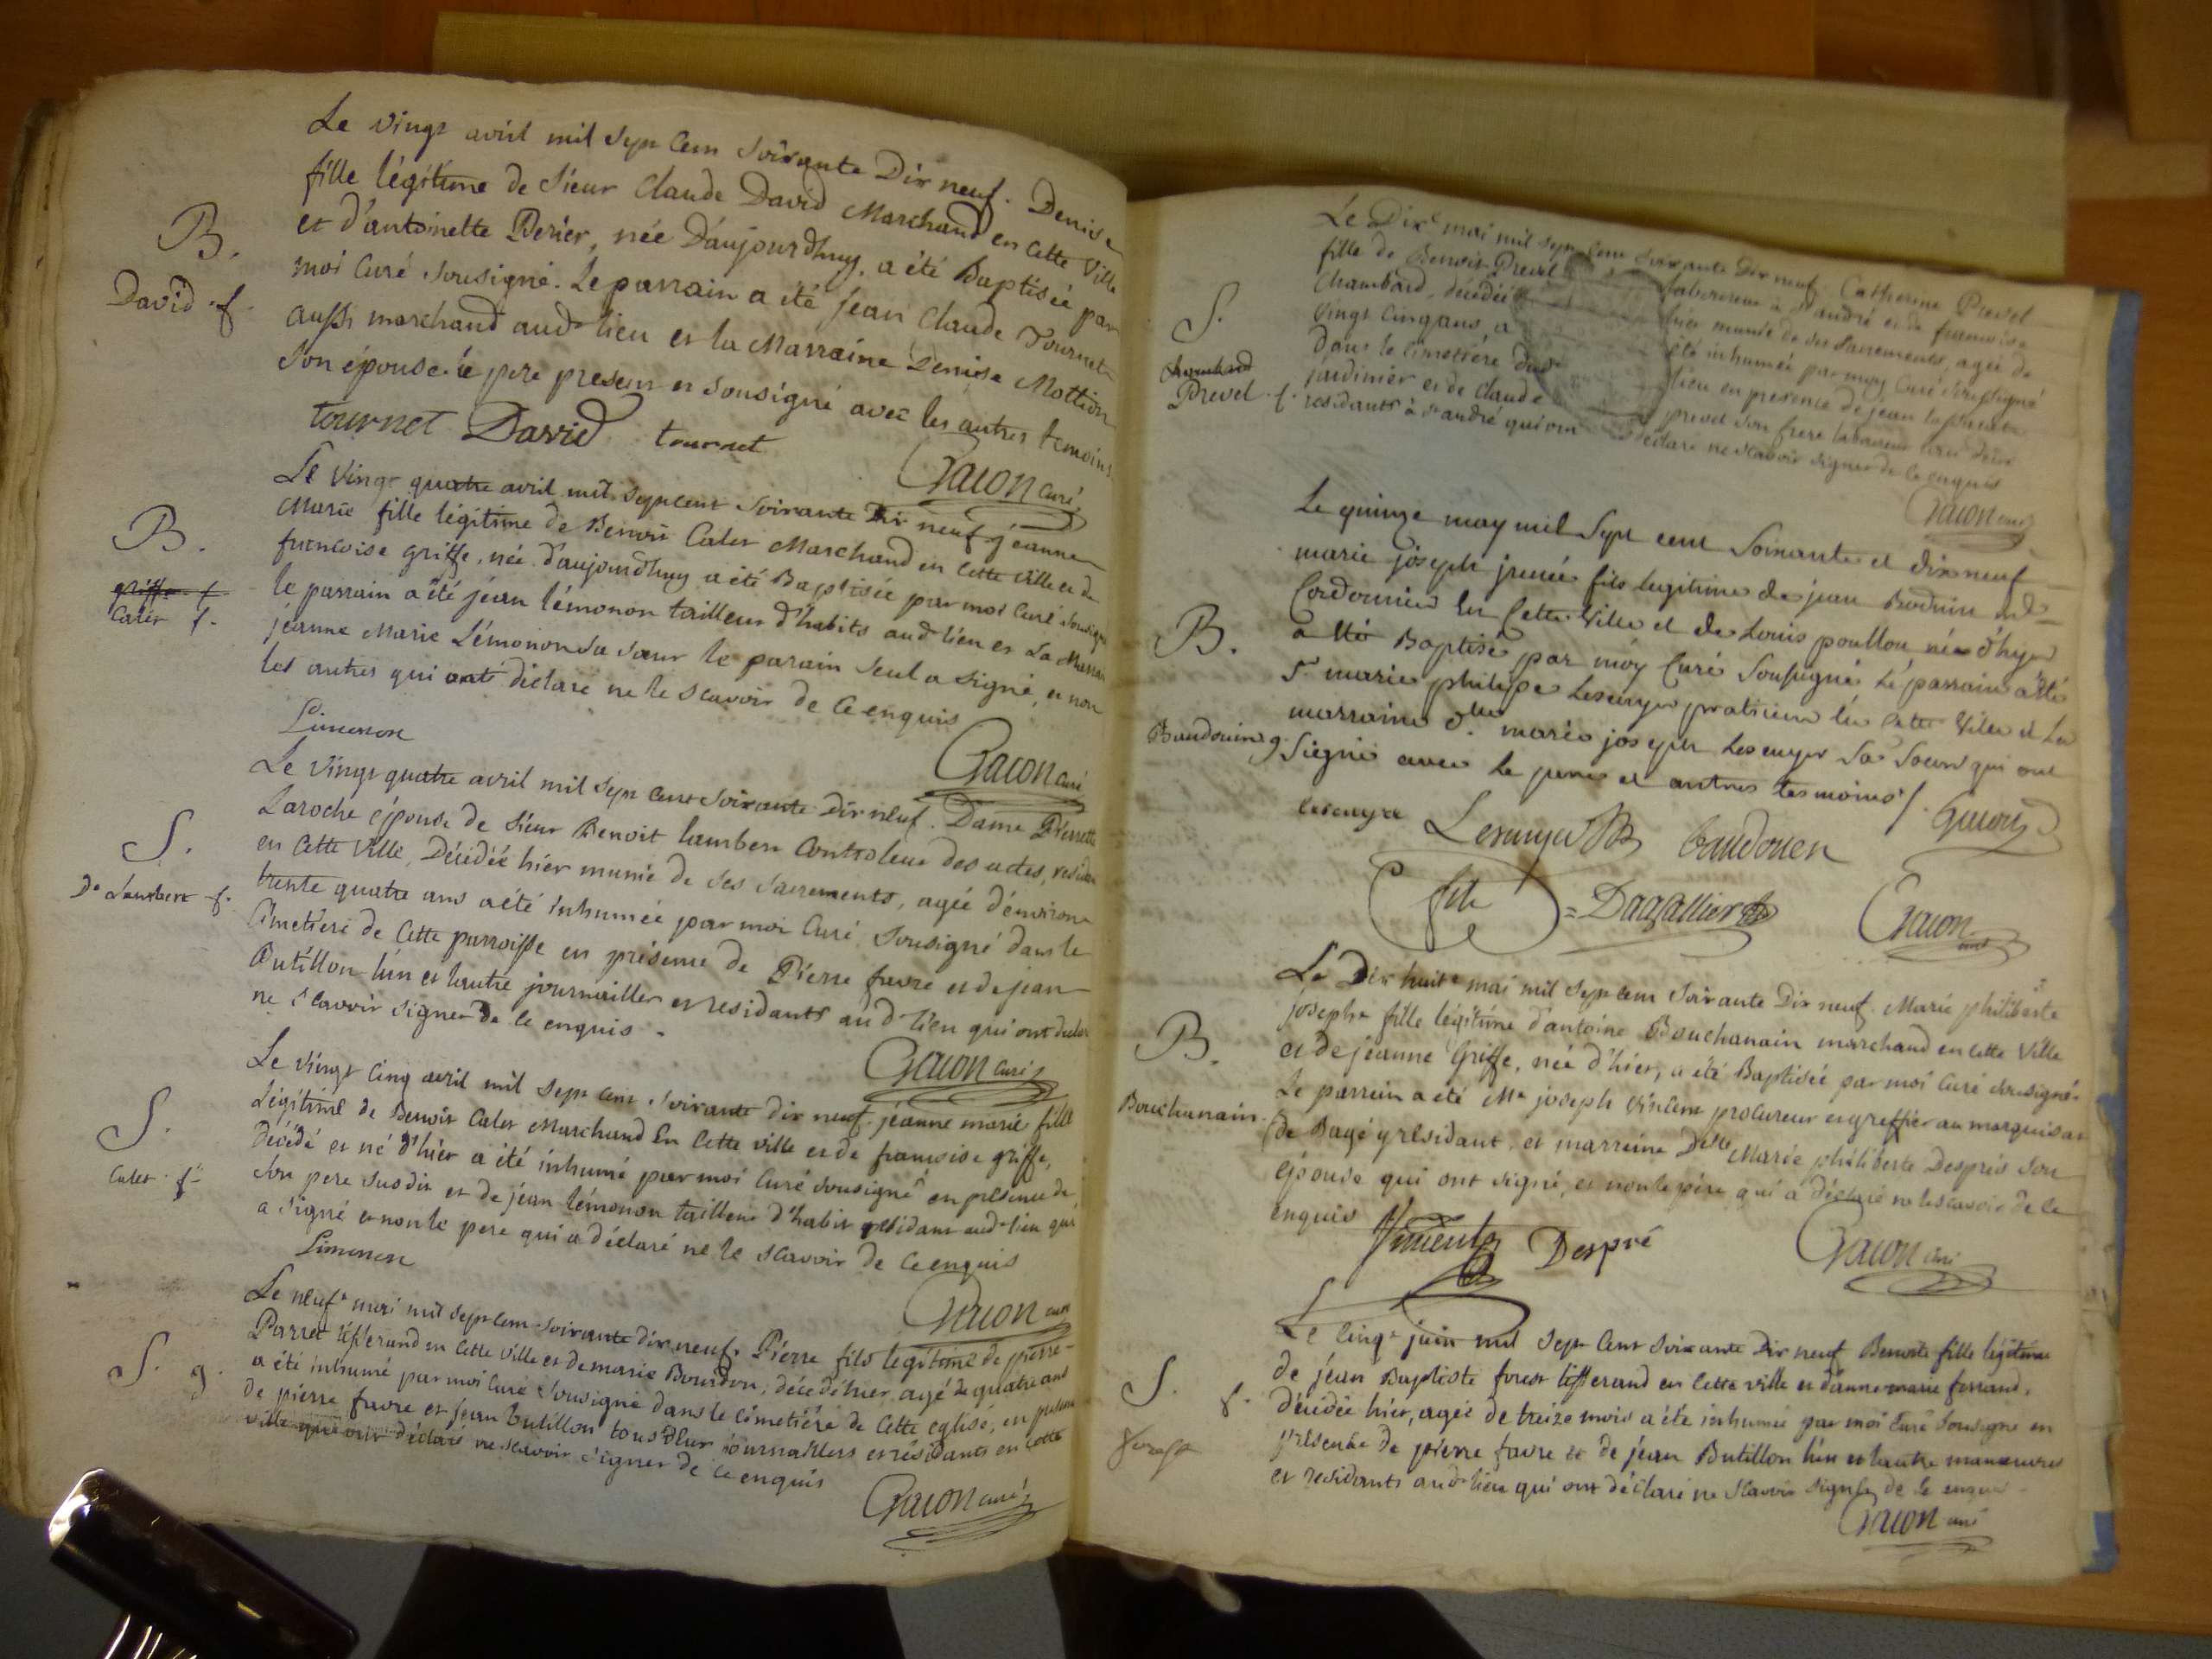 Le vingt avril mil sept cent soixante Dix neuf. Denise
fille légitime de sieur Claude David Marchand en cette ville
et d'antoinette Perier, née d'aujourdhuy, a été Baptisée par
moi Curé sousigné. Le parrain a été jean Claude Tournet
aussi marchand aud. lieu et la Marraine Denise Mottion
son épouse. le pere present et sousigné avec les autres temoins
B.
David f.
tournet David tournet
Gacon curé
Le vingt quatre avril mil sept cent soixante Dix neuf jéanne
Marie fille légitime de Benoit Calet Marchand en cette ville et de
francoise griffe, née d'aujourdhuy a été Baptisée par moi Curé sousigné
le parrain a été jéan lémonon tailleur d'habits aud. lieu et La Marraine
jéanne Marie Lémonon sa sœur le parain seul a signé, et non
les autres qui ont déclaré ne le scavoir de ce enquis
B.
griffe f
Calet f.
Limonon
Gacon curé
Le vingt quatre avril mil sept cent soixante Dix neuf. Dame Pierrette
Laroche épouse de sieur Benoit lambert Controleur des actes, residant
en cette ville, Décédée hier munie de ses sacrements, agée d'environ
trente quatre ans a été inhumée par moi Curé sousigné dans le
Cimetiere de cette parroisse en présence de Pierre favre et de jean
Butillon l'un et l'autre journailler et residants aud. lieu qui ont declaré
ne scavoir signer de ce enquis.
S.
De Lambert f.
Gacon curé
Le vingt cinq avril mil sept cent soixante dix neuf. jéanne marie fille
Légitime de Benoit Calet Marchand En cette ville et de francoise griffe,
Décédé et né d'hier a été inhumé par moi Curé sousigné en présence de
son pere susdit et de jéan lémonon tailleur d'habit residant aud. lieu qui
a signé et non le pere qui a déclaré ne le scavoir de ce enquis
S.
Calet f.
Limonon
Gacon curé
Le neuf mai mil sept cent soixante dix neuf. Pierre fils légitime de pierre
Parret tisserand en cette ville et de marie Bourdon, décédé hier, agé de quatre ans
a été inhumé par moi Curé Sousigné dans le cimetiére de cette eglise, en presence
de pierre favre et jean butillon tous deux journaillers et résidants en cette
ville qui ont déclaré ne scavoir signer de ce enquis
S. g.
Gacon curé
Le Dix mai mil sept cent soixante Dix neuf. Catherine Prevel
fille de Benoit Prevel laboureur à St andré et de francoise
Chambard, décédée hier munie de ses sacrements, agée de
vingt cinq ans, a été inhumée par moy Curé soussigné
dans le cimetiére dud. lieu en presence de jean
jardinier et de claude prevel son frere laboureur
residants à St andré qui ont déclaré ne scavoir signer de ce enquis
S.
Chambard
Prevel f.
Gacon curé
Le quinze may mil sept cent soixante et dix neuf
marie joseph fils legitime de jean Boduin
Cordonnier en cette ville et de Louis poullon né d'hyer
a été Baptisé par moy Curé soussigné le parrain a été
Sr marie philipe Lescuyer praticien en cette ville et La
marraine dlle marie joseph Lescuyer sa soeur qui ont
signé avec le pere et autres tesmoins /.
B.
Baudouin g
lescuyer Lescuyer baudouen
Dagallier
Gacon curé
Le Dix huit mai mil sept cent soixante Dix neuf. Marie philiberte
josephe fille légitime d'antoine Bouchanain marchand en cette ville
et de jeanne Griffe, née d'hier, a été Baptisée par moi Curé sousigné.
Le parrein a été Me joseph Vincent procureur et greffier au marquisat
de Bagé y residant, et marreine Delle Marie philiberte Desprès son
épouse qui ont signé, et non le pére qui a déclaré ne le scavoir de ce
enquis
B.
Bouchanain.
Vincent Despré
Gacon curé
Le cinq juin mil sept cent soixante Dix neuf Benoite fille légitime
de jéan Baptiste forest tisserand en cette ville et d'anne marie ferrand.
décédée hier, agée de treize mois a été inhumée par moi Curé Sousigné en
présence de pierre favre et de jéan Butillon l'un et l'autre manœuvres
et residants aud. lieu qui ont déclaré ne scavoir signer de ce enquis.
S. f.
forest
Gacon curé